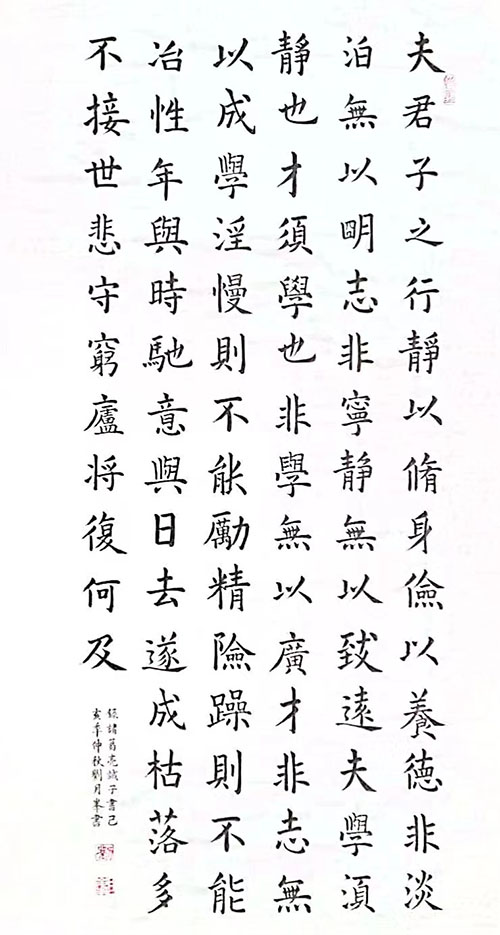 夫君子之行靜以脩身儉以養德非淡
泊無以眀志非寧靜無以致遠夫學湏
靜也才須學也非學無以廣才非志無
以成學淫慢則不能勵精險躁則不能
冶性年與時馳意與日去遂成枯落多
不接世悲守窮廬将復何及
錄諸葛亮誡子書己
亥秊仲秋劉月峯書